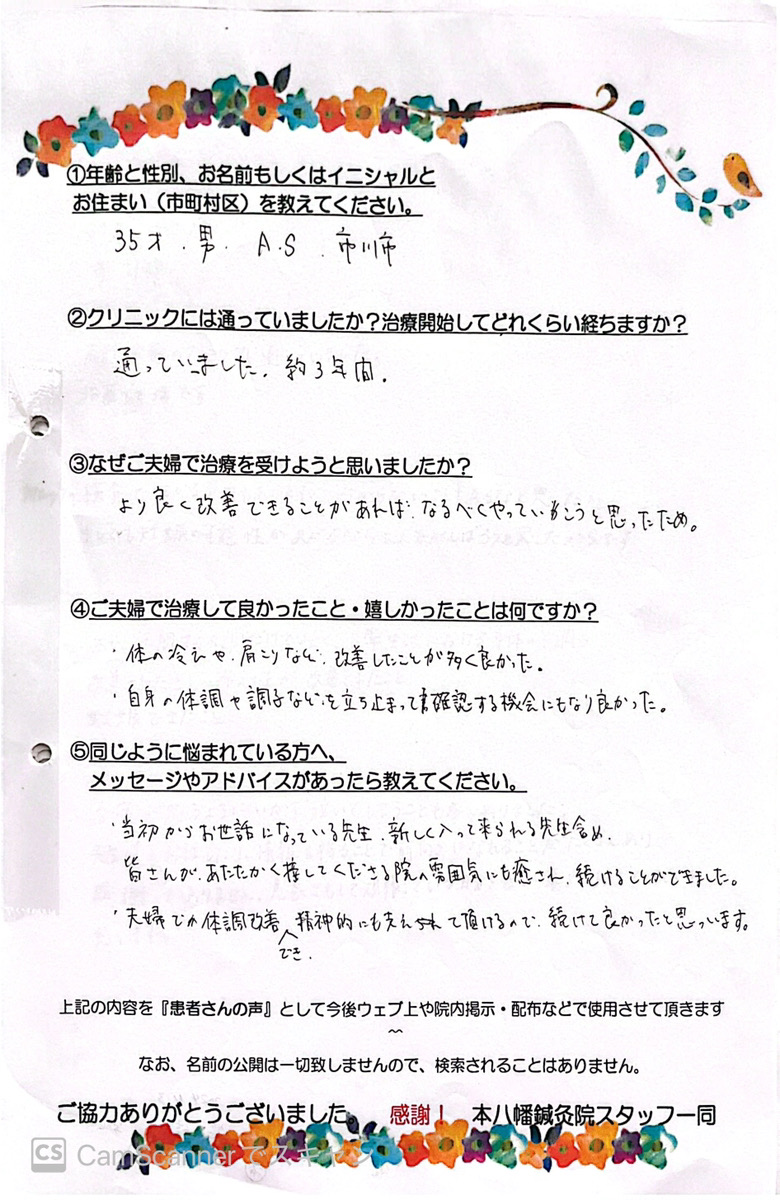 ①年齢と性別、お名前もしくはイニシャルと
お住まい（市町村区）を教えてください。
35才．男． A.S ．市川市
②クリニックには通っていましたか？治療開始してどれくらい経ちますか？
通っていました．約3年間．
③なぜご夫婦で治療を受けようと思いましたか？
より良く改善できることがあれば、なるべくやっていこうと思ったため。
④ご夫婦で治療して良かったこと・嬉しかったことは何ですか？
・体の冷えや、肩こりなど、改善したことが多く良かった。
・自身の体調や調子などを立ち止まって確認する機会にもなり良かった。
⑤同じように悩まれている方へ、
メッセージやアドバイスがあったら教えてください。
・当初からお世話になっている先生、新しく入って来られる先生含め、
皆さんが、あたたかく接してくださる院の雰囲気にも癒され、続けることができました。
・夫婦での体調改善でき、精神的にも支えられて頂けるので、続けて良かったと思っています。
上記の内容を『患者さんの声』として今後ウェブ上や院内掲示・配布などで使用させて頂きます
~
なお、名前の公開は一切致しませんので、検索されることはありません。
ご協力ありがとうございました。 感謝！ 本八幡鍼灸院スタッフ一同
CS CamScanner でスキャン